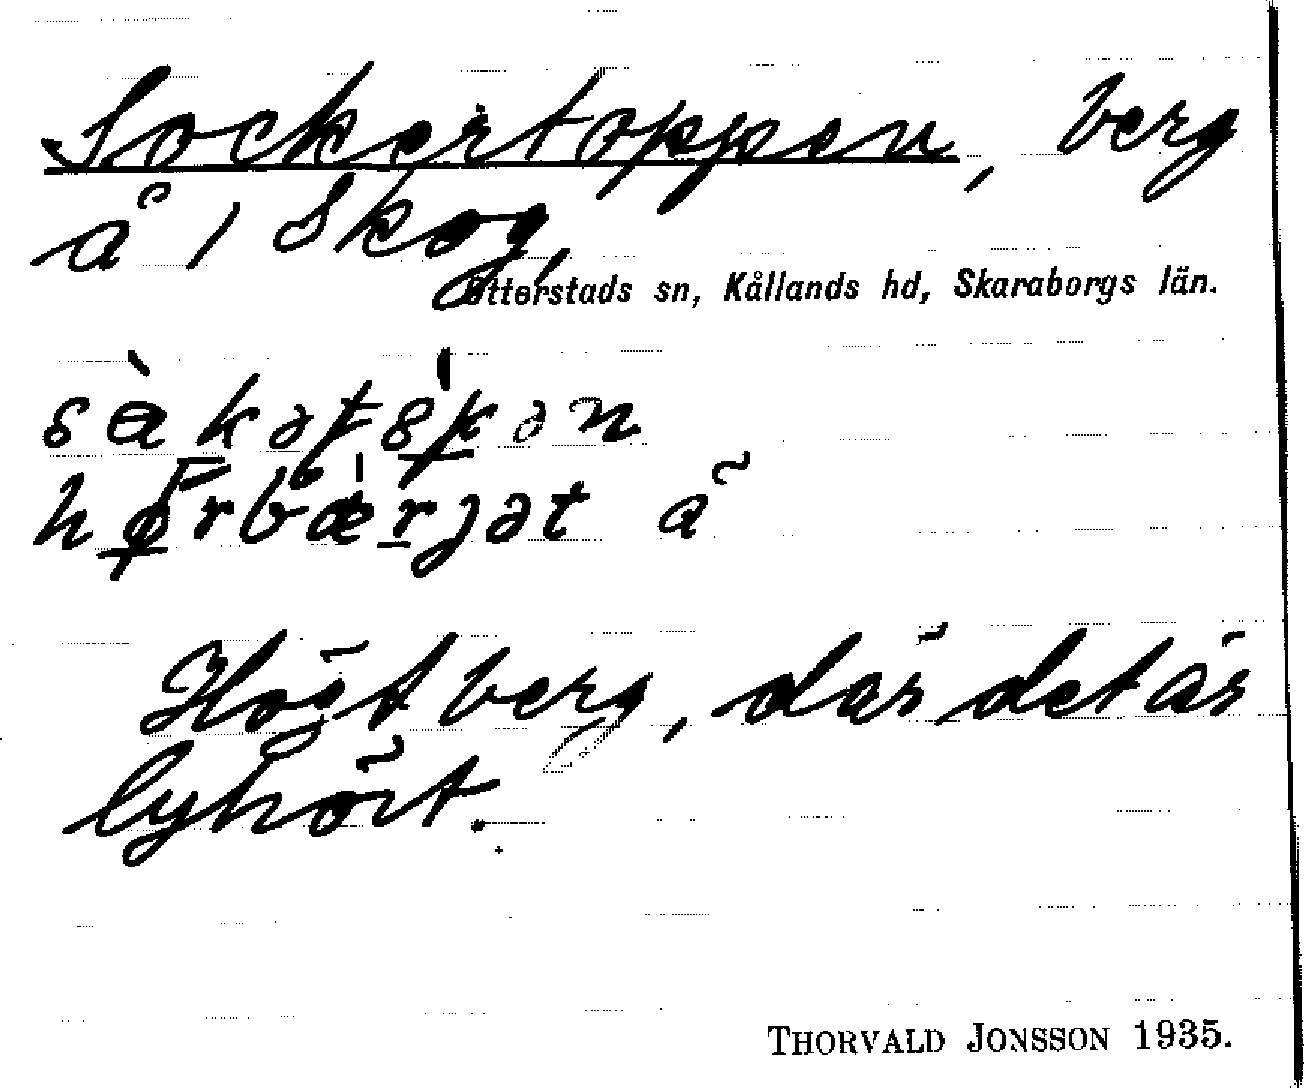 Sockertoppen, berg
å 1 Skog,
Otterstads sn, Kållands hd, Skaraborgs län.
Högt berg, där det är
lyhört.
THORVALD JONSSON 1935.